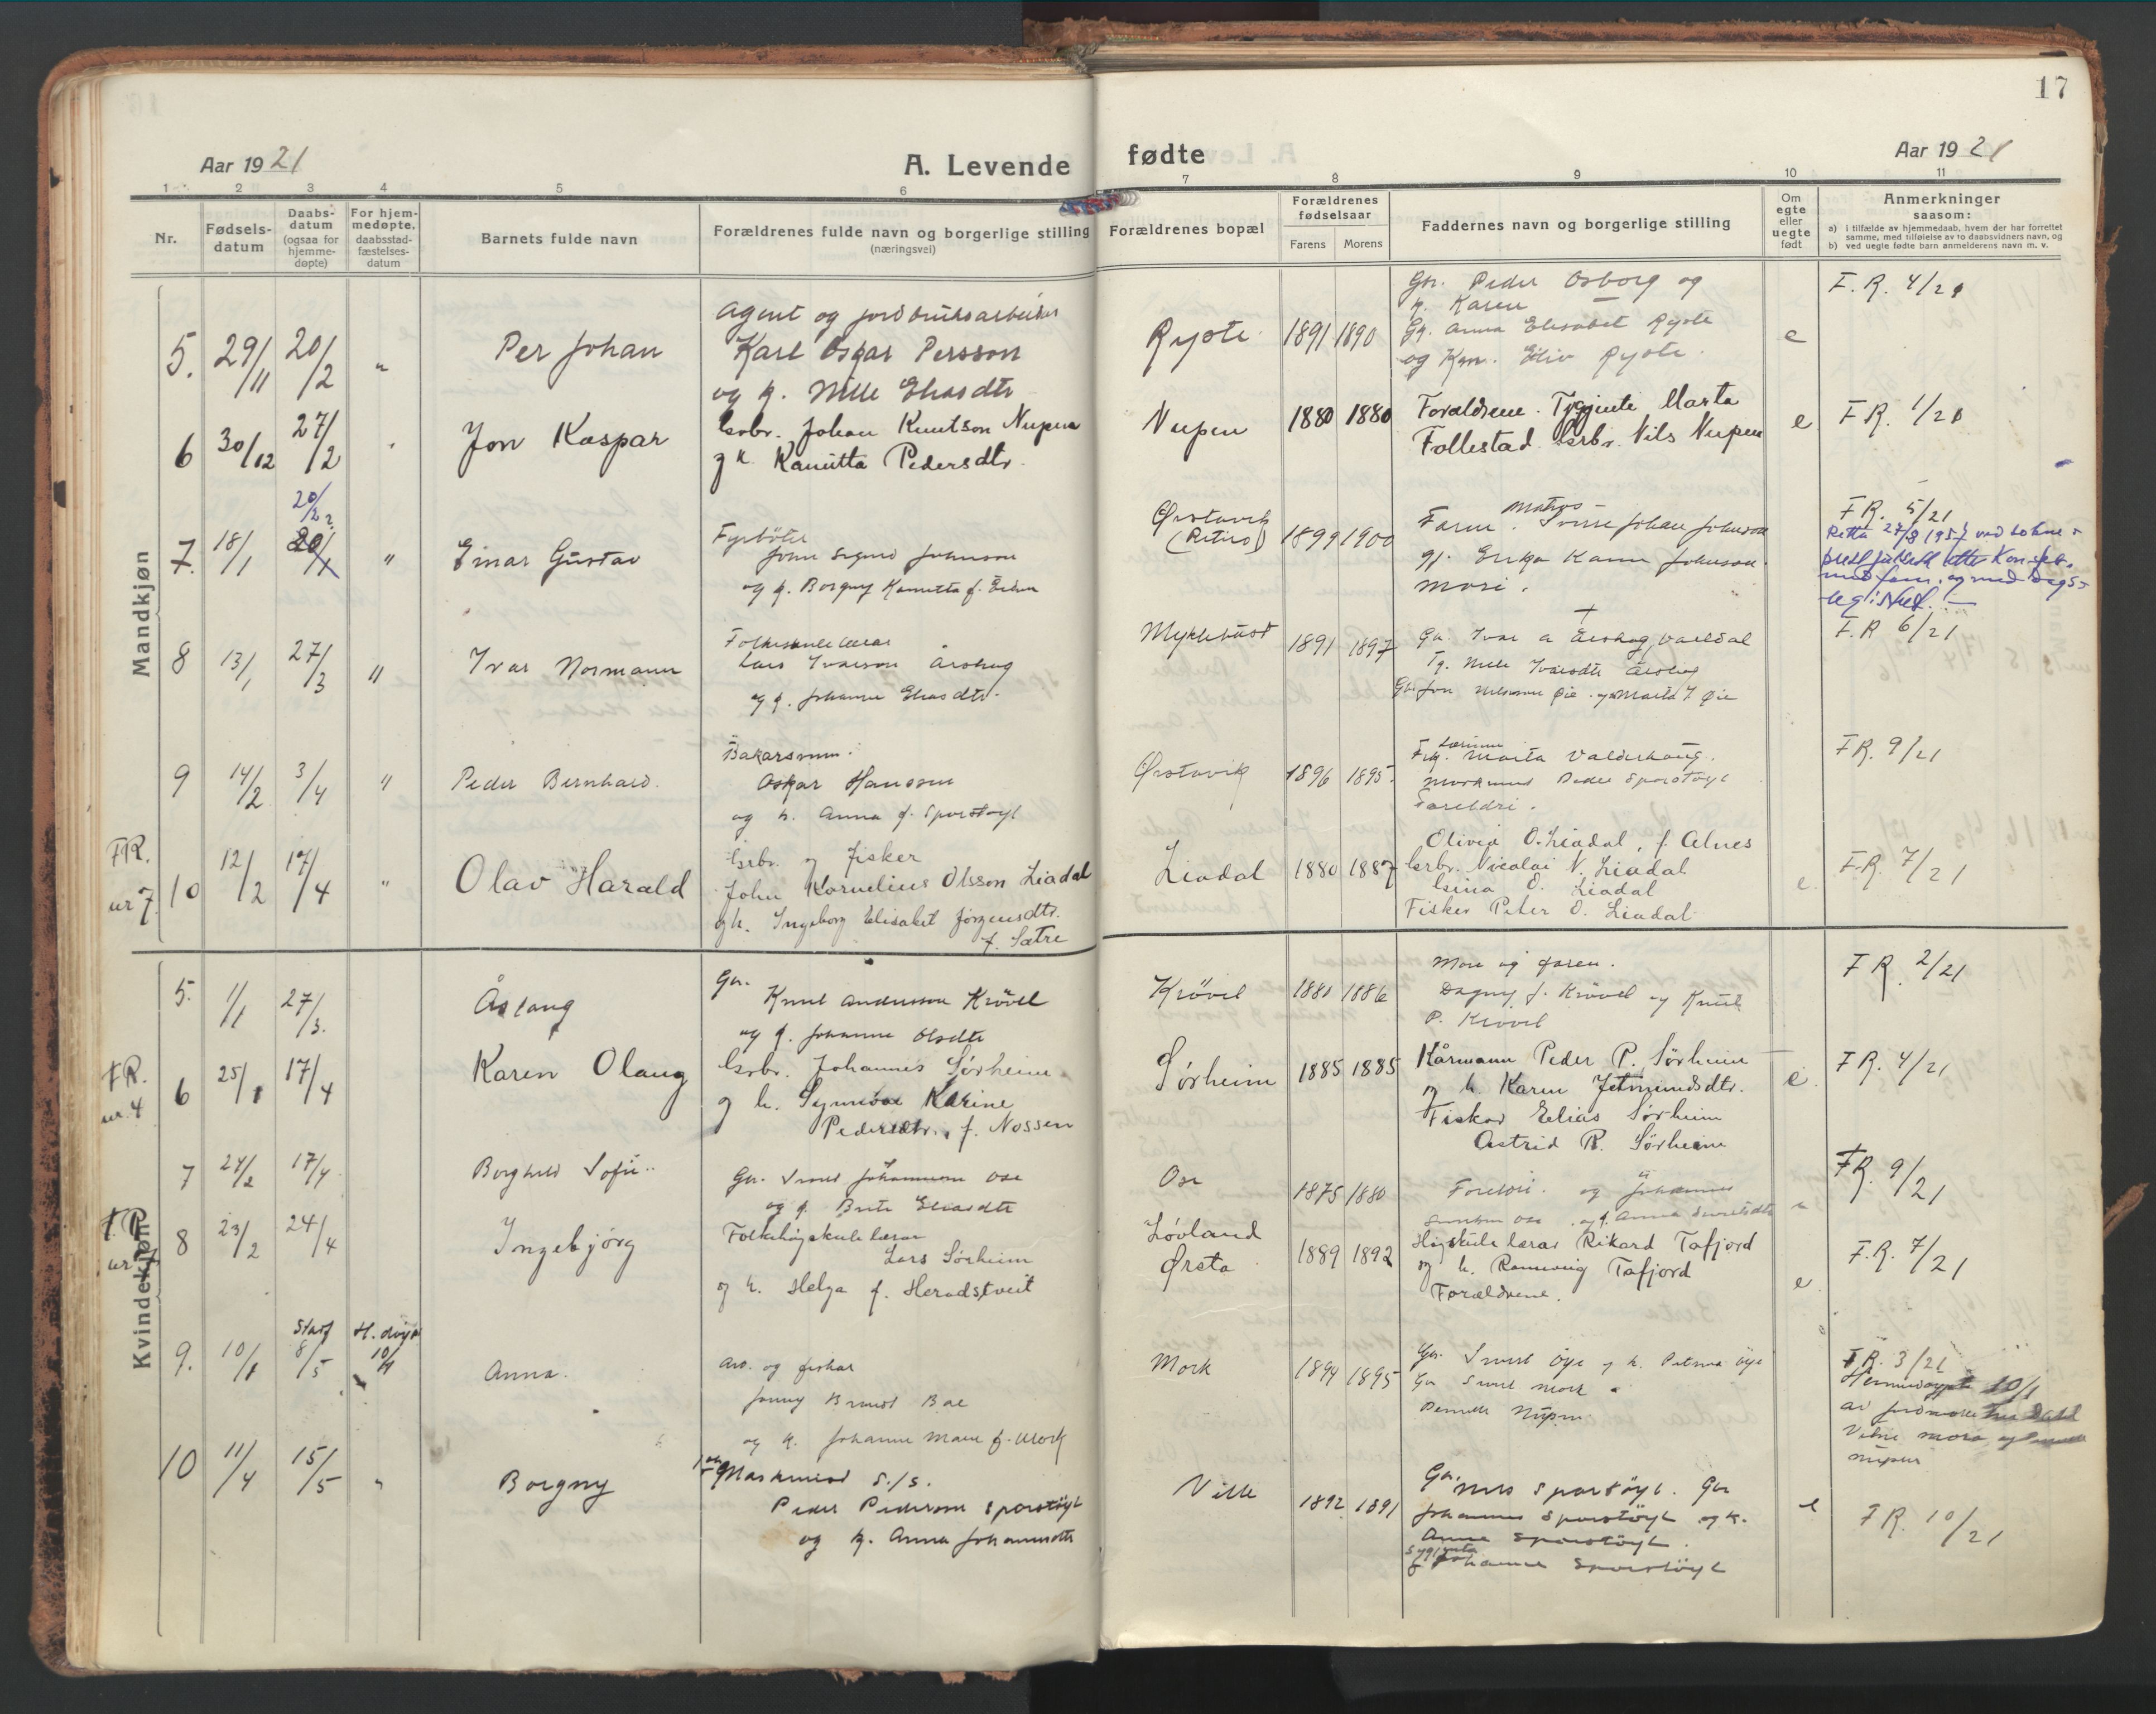 17
Aar 1921
A. Levende fødte
Aar 1921
1 2 3 4 5 6 7 8 9 10 11
Nr.
Fødselsdatum
Daabsdatum (ogsaa for hjemmedøpte)
For hjemmedøpte, daabsstadfæstelsesdatum
Barnets fulde navn
Forældrenes fulde navn og borgerlige stilling (næringsvei)
Forældrenes bopæl
Forældrenes fødselsaar
Farens Morens
Faddernes navn og borgerlige stilling
Om egte eller uegte født
Anmerkninger saasom:
a) i tilfælde av hjemmedaab, hvem der har forrettet samme, med tilføielse av to daabsvidners navn, og
b) ved uegte fødte barn anmelderens navn m. v.
Mandkjøn
5. 29/11 20/2 " Per Johan
Agent og jordbruksarbeider
Karl Oskar Persson
og k. Nille Eliasdtr
Ryste 1891 1890
Gr. Peder Osborg og
k. Karen
Gk. Anna Elisabet Ryste
og Ryste.
e
F.R. 4/21
6 30/12 27/2 " Jon Kaspar
Grbr. Johan Knutson Nupen
og k. Kanutta Pedersdtr.
Nupen 1880 1880
Forældrene. Marta
Follestad Grbr. Nils Nupen
e
F.R. 1/20
7. 18/1 20/2 " Einar Gustav
Fyrbøter
John Sigurd Johnson
og k. Borgny Kanutta f.
Ørstavik 1899 1900
Matros
Faren. Johan Johnson
gk. Erika Johnson
Mori.
F.R. 5/21
Retta 27/8 1957 ved sokne-
8 13/1 27/3 " Ivar Normann
Folkeskulelærar
Lars Ivarson Årskog
og k. Johanne Eliasdtr.
Myklebust 1891 1897
Gr. Ivar A Årskog, Vartdal
Tg. Nille Ivarsdtr Årskog
Gbr Jon Nilsson Øie og Marta J Øie
F.R 6/21
9 14/2 3/4 " Peder Bernhard.
Bakarsvein.
Oskar Hansen
og k. Anna f. Sporstøyl
Ørstavik 1896 1895.
Frk. Marta Valderhaug.
Peder Sporstøyl
Foreldri.
FR. 9/21
FR. nr 7.
10 12/2 17/4 " Olav Harald
Grbr. og fisker
John Kornelius Olsson Liadal
og k. Ingeborg Elisabet Jørgensdtr.
f. Sætre
Liadal 1880 1887
Olivia O. Liadal, f. Alnes
Grbr. Nicolai N. Liadal
Gina O. Liadal
Fisker Peter O. Liadal
e.
F.R. 7/21
Kvindekjøn
5. 1/1 27/3. Åslaug
Gr.
Knut Andersson Krøvel
og k. Johanne Olsdtr
Krøvel 1881 1886
Mor og faren.
Dagny J. Krøvel og Knut
P. Krøvel
F R. 2/21
FR. nr. 4
6 25/1 17/4 Karen Olaug
Grbr. Johannes Sørheim
og k. Synnøve Karine
Pedersdtr., f. Nossen
Sørheim 1885 1885
Kårmann Peder P. Sørheim
og k. Karen Jetmundsdtr.
Fiskar Elias Sørheim
Astrid R. Sørheim
e.
FR. 4/21
7 24/2 17/4 Borghild Sofie
Gr. Sivert Johannesson Ose
og k. Brite Eliasdtr
Ose 1875 1880
Foreldri. og Johannes
Sivertson Ose og k. Anna Sivertsdtr
FR. 9/21
F.R. nr 7
8 23/2 24/4 Ingebjørg
Folkehøgskulelærar
Lars Sørheim
og k. Helga f. Heradstveit
Løvland
Ørsta 1889 1892
Høgskulelærar Rikard Tafjord
og k. Rannveig Tafjord
Forældrene.
e
F.R. 7/21
9. 10/1 Stadf 8/5 H. døypt 10/1 Anna.
Arb. og fiskar
Jonny Berntset Boe
og k. Johanne Marie f. Mork
Mork 1894 1895
Gr. Sivert Øye og k. Petrina Øye
Gr Sivert Mork
Pernille Nupen.
F.R. 3/21
Heimedøypt 10/1
av jordmor
Vitne mora og
Nupen
10 11/4 15/5 " Borgny
Maskinist
Peder Pederson Sporstøyl
og k. Anna Johannesdtr
Velle 1892 1891
Gr. Nils Sporstøyl. Gbr
Johannes Sporstøyl og k.
Anne Sporstøyl.
Johanne Sporstøyl
e
F.R. 10/21